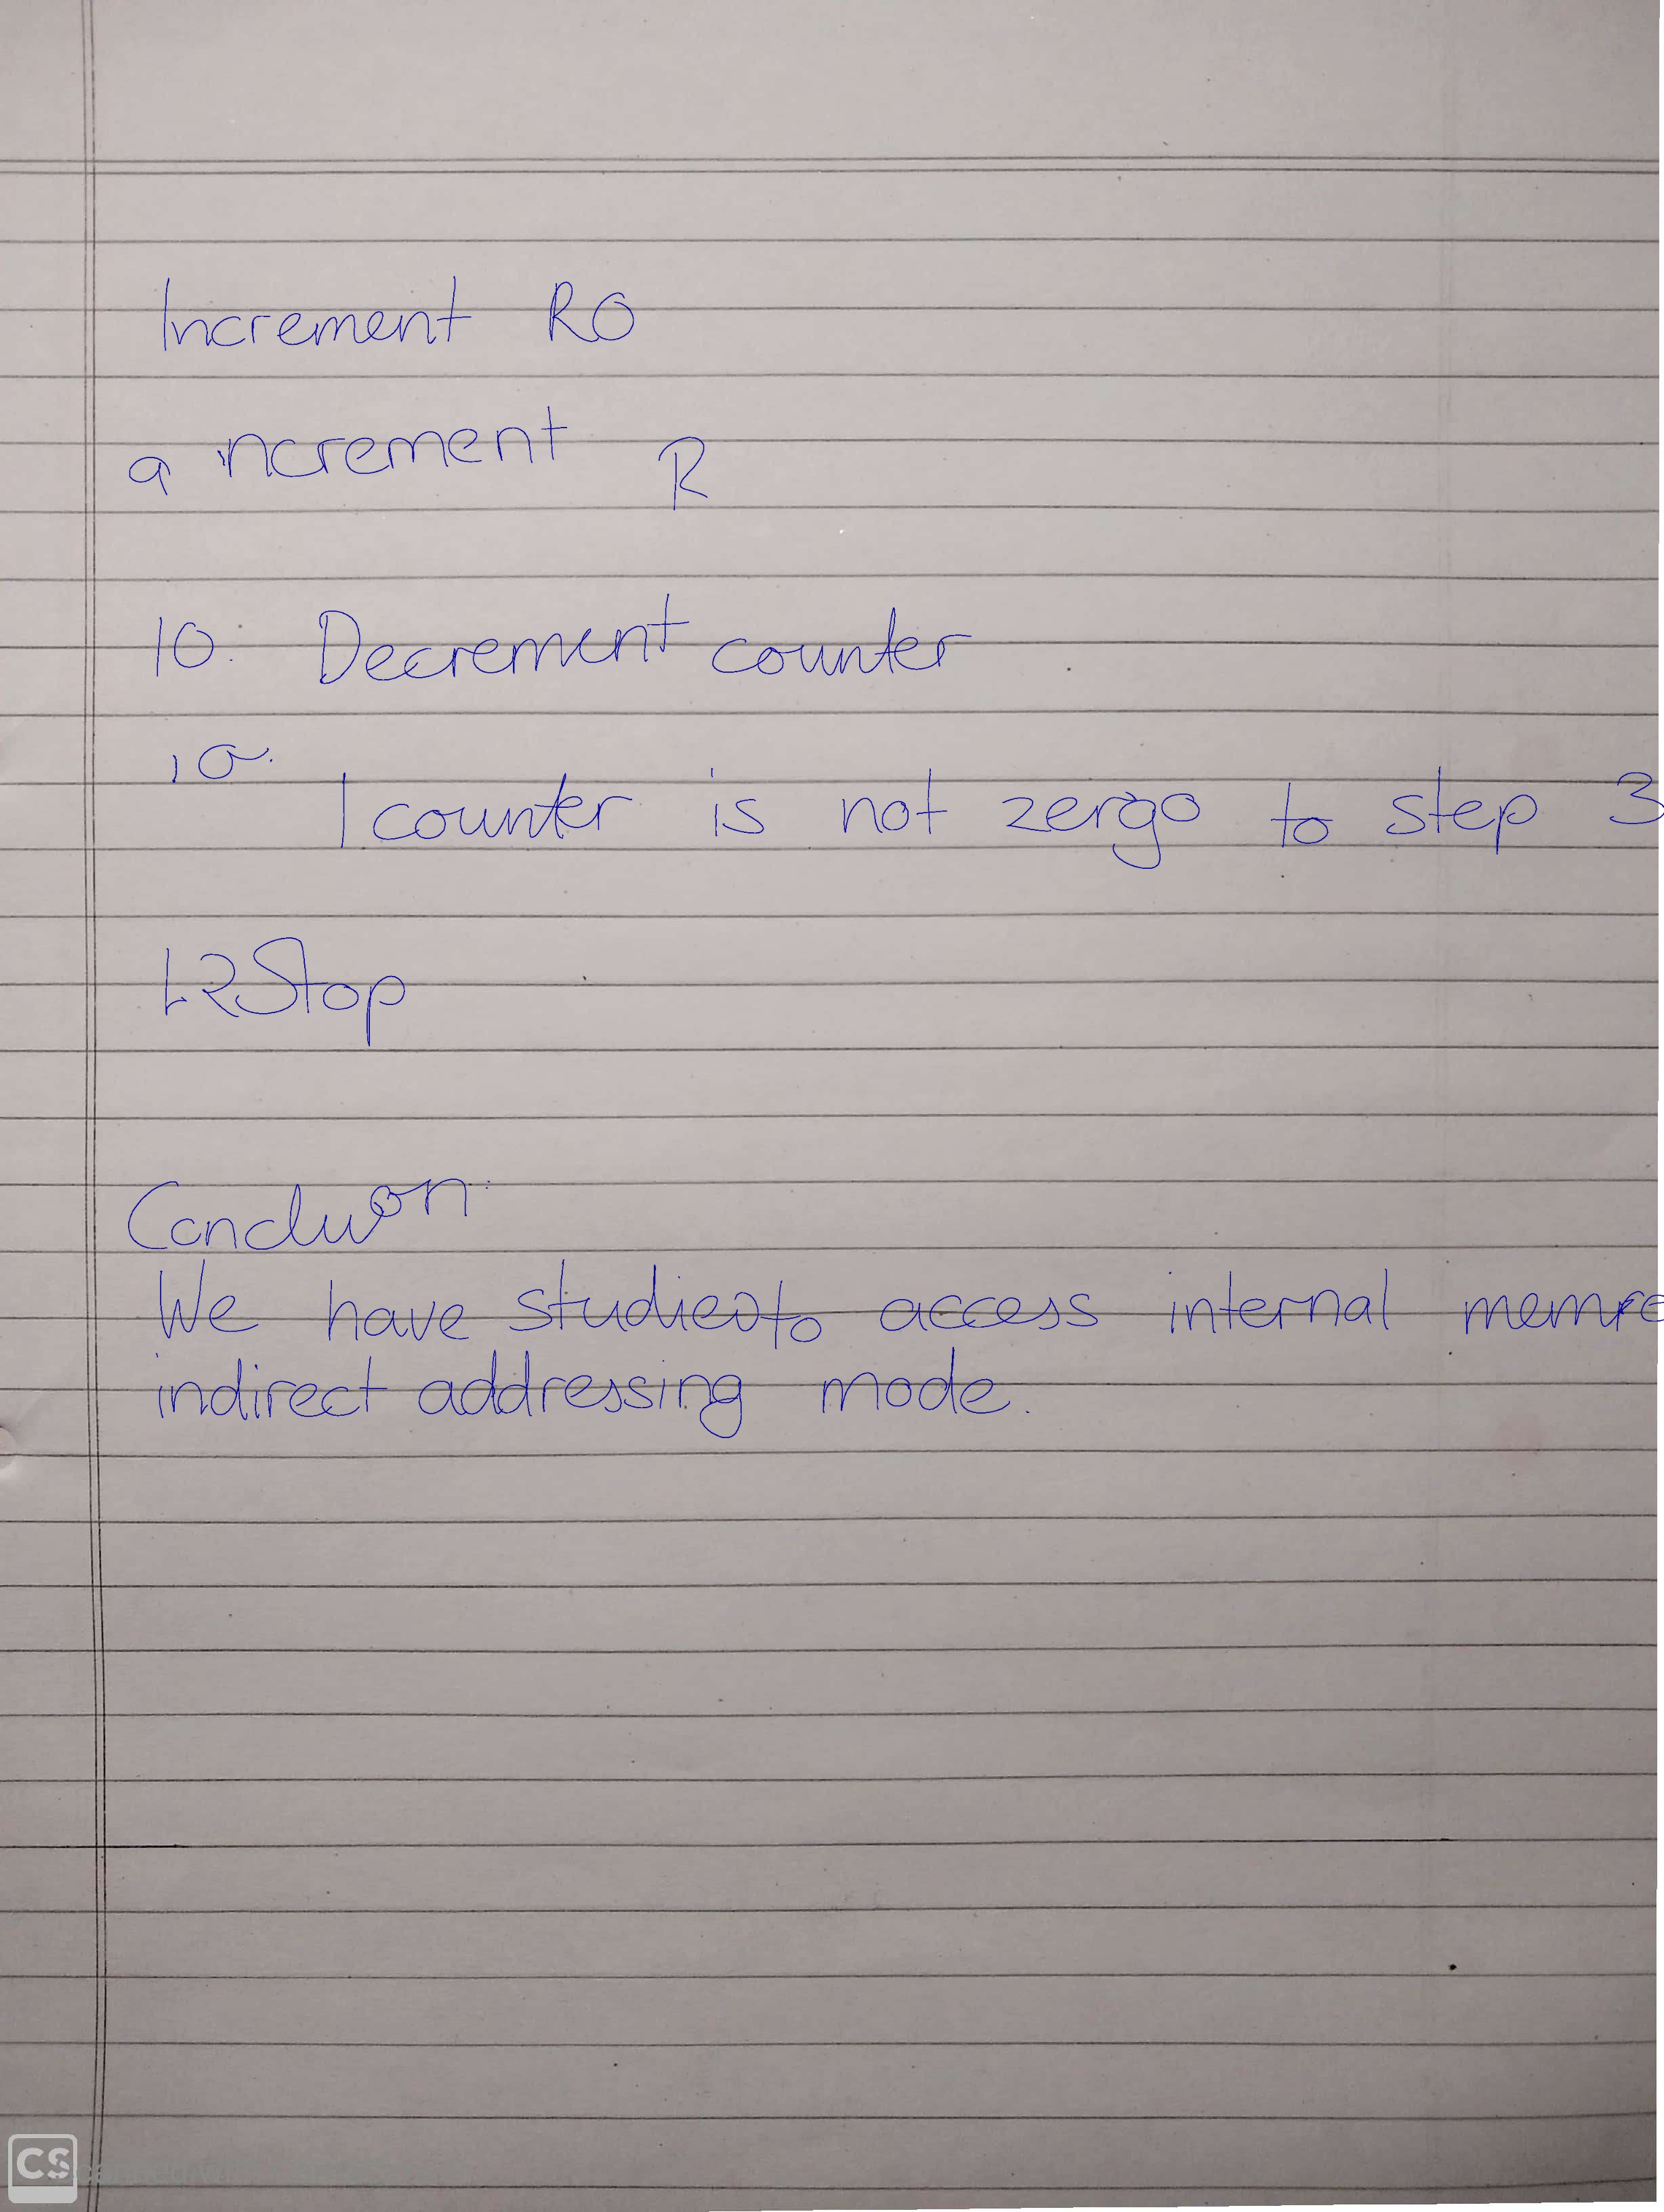 Increment RO
a increment R
10. Decrement counter
10.
1 counter is not zergo to step 3
12 Stop
Concluon:
We have studied to access internal memre
indirect addressing mode.
CS